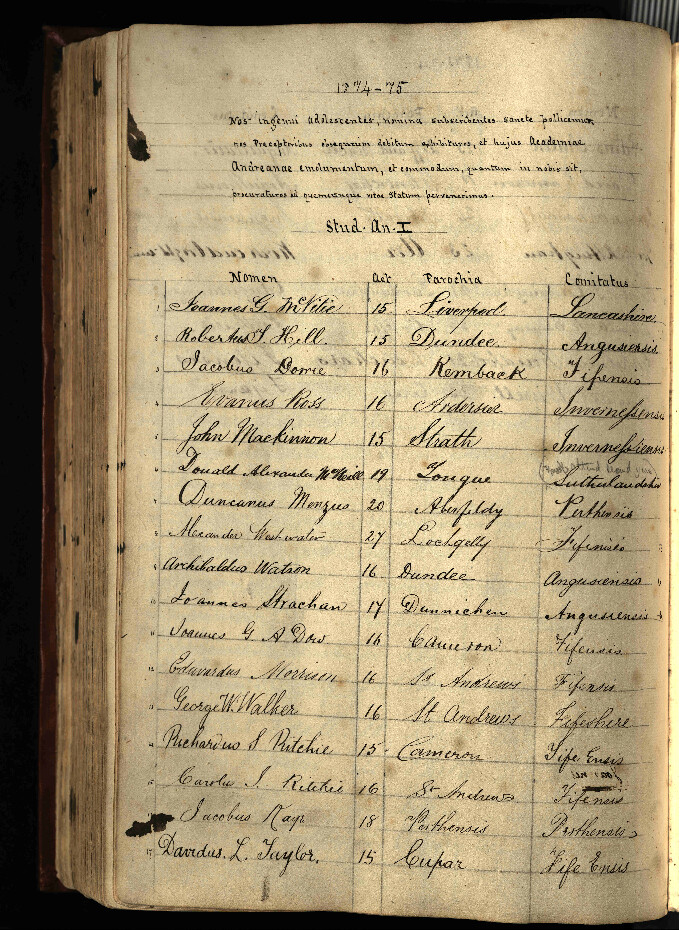 1874-75
Nos ingenui adolescentes, nomina subscribentes sancte pollicemur,
nos Preceptoribus obsequium debitum exhibituros, et hujus Academiae
Andreanae emolumentum, et commodum, quantum in nobis sit,
procuraturos ad quemcunque vitae statum pervenerimus.
Stud. An. I
Nomen Aet Parochia Comitatus
1 Joannes G. McVitie 15 Liverpool Lancashire
2 Robertus T. Hill. 15 Dundee Angusiensis
3 Jacobus Dowie 16 Kemback Fifensis
4 Evanus Ross 16 Invernessensis
5 John Mackinnon 15 Strath Invernessiensis
6 Donald Alexander McNeill 19 Tongue Sutherlandshire
7 Duncanus Menzies 20 Aberfeldy Perthensis
8 Alexander Westwater 27 Lochgelly Fifensis
9 Archibaldus Watson 16 Dundee Angusiensis
10 Joannes Strachan 17 Dunnichen Angusiensis
11 Joannes G A Dow 16 Cameron Fifensis
12 Edwardus Morrison 16 St Andrews Fifensis
13 George W. Walker 16 St Andrews Fifeshire
14 Richardus S Ritchie 15 Cameron Fife Ensis
15 Carolus J. Ritchie 16 St Andrews Fifensis
16 Jacobus Kay 18 Perthensis Perthensis
17 Davidus. L. Taylor. 15 Cupar Fife Ensis